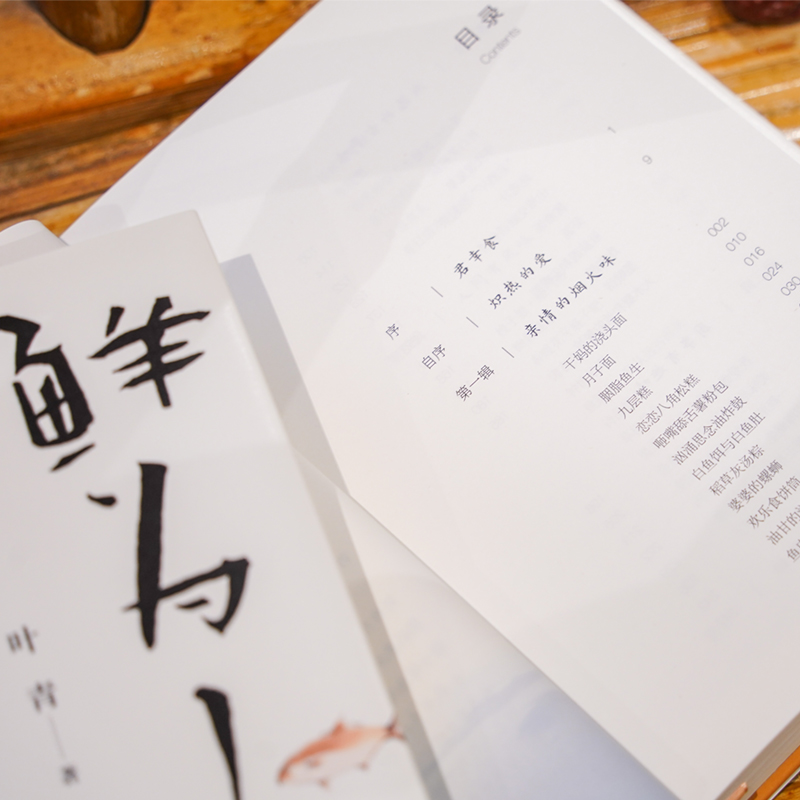 目录
Contents
序 | 君幸食 1
自序 | 炽热的爱 9
第一辑 | 亲情的烟火味
干妈的浇头面 002
月子面 010
胭脂鱼生 016
九层糕 024
恋恋八角松糕 030
咂嘴舔舌薯粉包
汹涌思念油炸鼓
白鱼饵与白鱼肚
稻草灰汤粽
婆婆的螺蛳
欢乐食饼筒
油甘的
鱼
鲜为
叶青——著